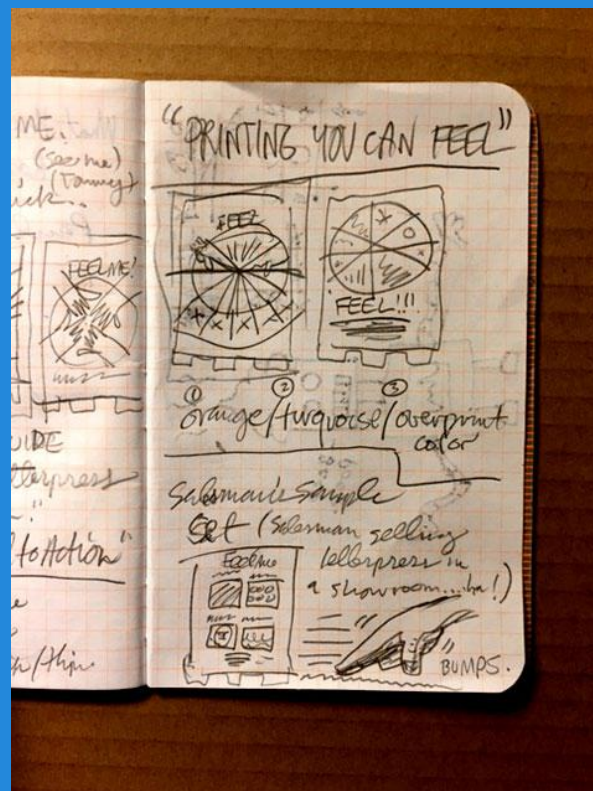 ME.
(see me)
(Tommy)
FEEL ME!
GUIDE
letterpress
to Action"
"PRINTING YOU CAN FEEL"
FEEL
FEEL!!!
① ② ③
orange/turquoise/overprint
color
Salesman's Sample
Set (Salesman selling
letterpress in
a showroom...ha!)
Feel Me
"BUMPS."